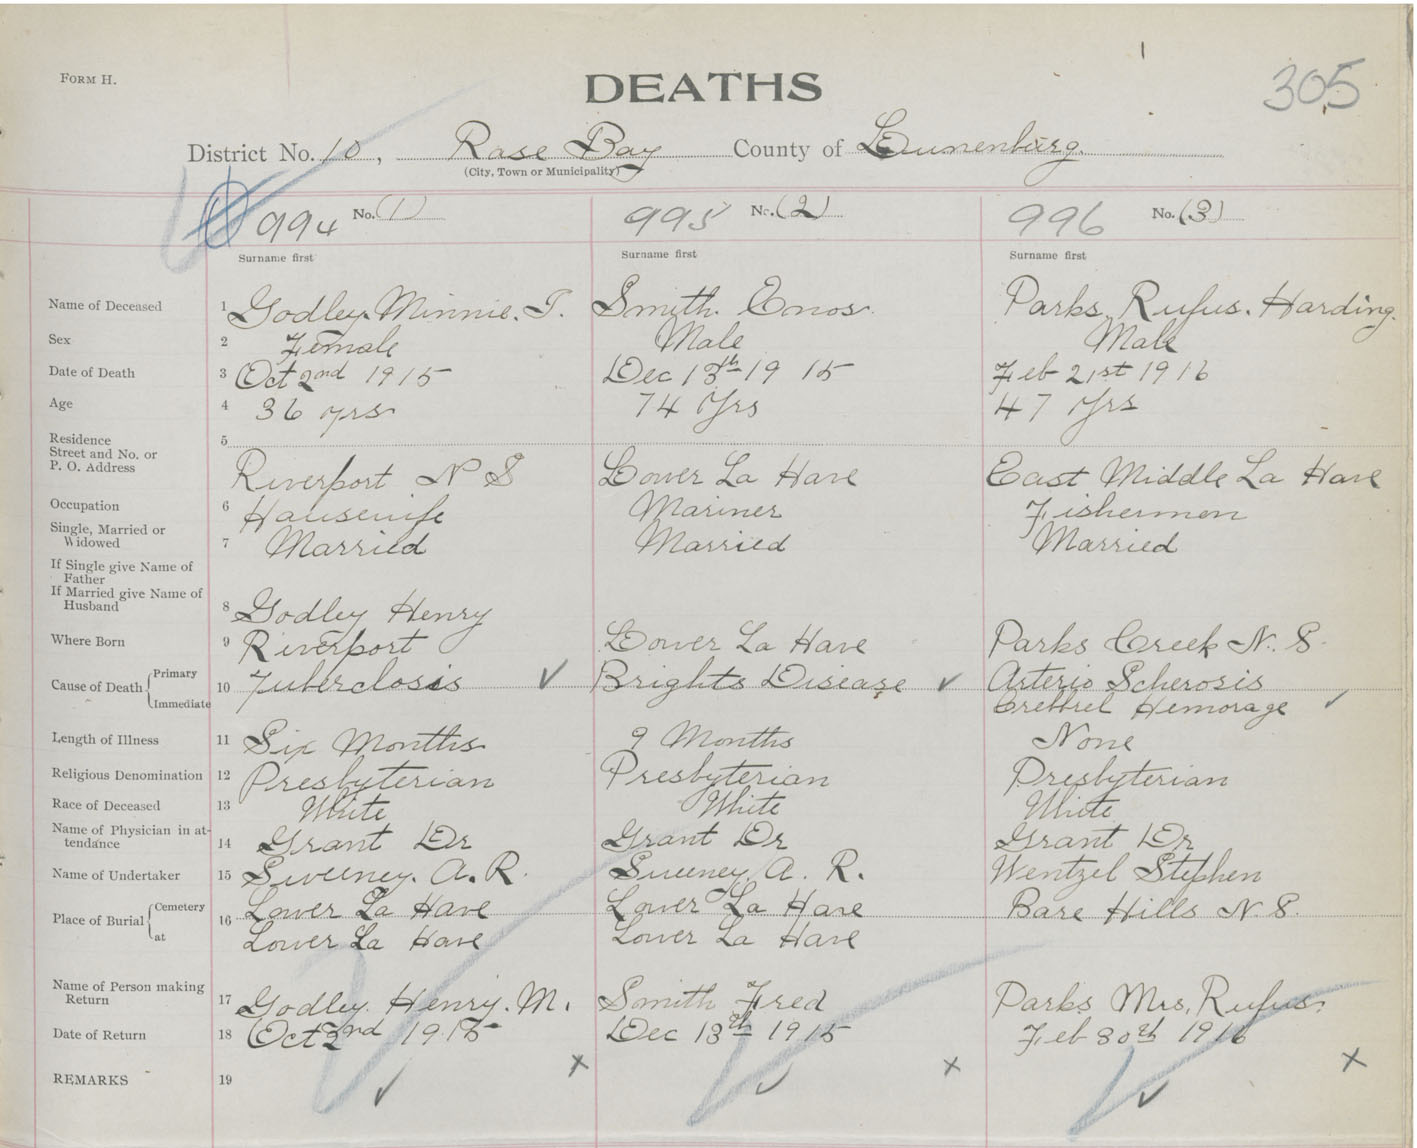 FORM H.
DEATHS
305
District No. 10, Rose Bay County of Lunenburg.
(City, Town or Municipality)
994 No. (1) 995 No. (2) 996 No. (3)
Surname first Surname first Surname first
Name of Deceased 1 Godley. Minnie. T. Smith. Enos. Parks, Rufus. Harding.
Sex 2 Female Male Male
Date of Death 3 Oct 2nd 1915 Dec 13th 1915 Feb 21st 1916
Age 4 36 yrs 74 Yrs 47 Yrs
Residence 5
Street and No. or
P. O. Address Riverport N S Lower La Have East Middle La Have
Occupation 6 Housewife Mariner Fishermen
Single, Married or
Widowed 7 Married Married Married
If Single give Name of
Father
If Married give Name of
Husband 8 Godley Henry
Where Born 9 Riverport Lower La Have Parks Creek N. S.
Cause of Death Primary 10 Tuberclosis Brights Disease Arterio Scherosis
Immediate Crebbrel Hemorage
Length of Illness 11 Six Months 9 Months None
Religious Denomination 12 Presbyterian Presbyterian Presbyterian
Race of Deceased 13 White White White
Name of Physician in at-
tendance 14 Grant Dr Grant Dr Grant Dr
Name of Undertaker 15 Sweeney. A. R. Sweeney A. R. Wentzel Stephen
Place of Burial Cemetery 16 Lower La Have Lower La Have Bare Hills N. S.
at Lower La Have Lower La Have
Name of Person making
Return 17 Godley. Henry. M. Smith Fred Parks Mrs. Rufus.
Date of Return 18 Oct 2nd 1915 Dec 13th 1915 Feb 30th 1916
REMARKS 19